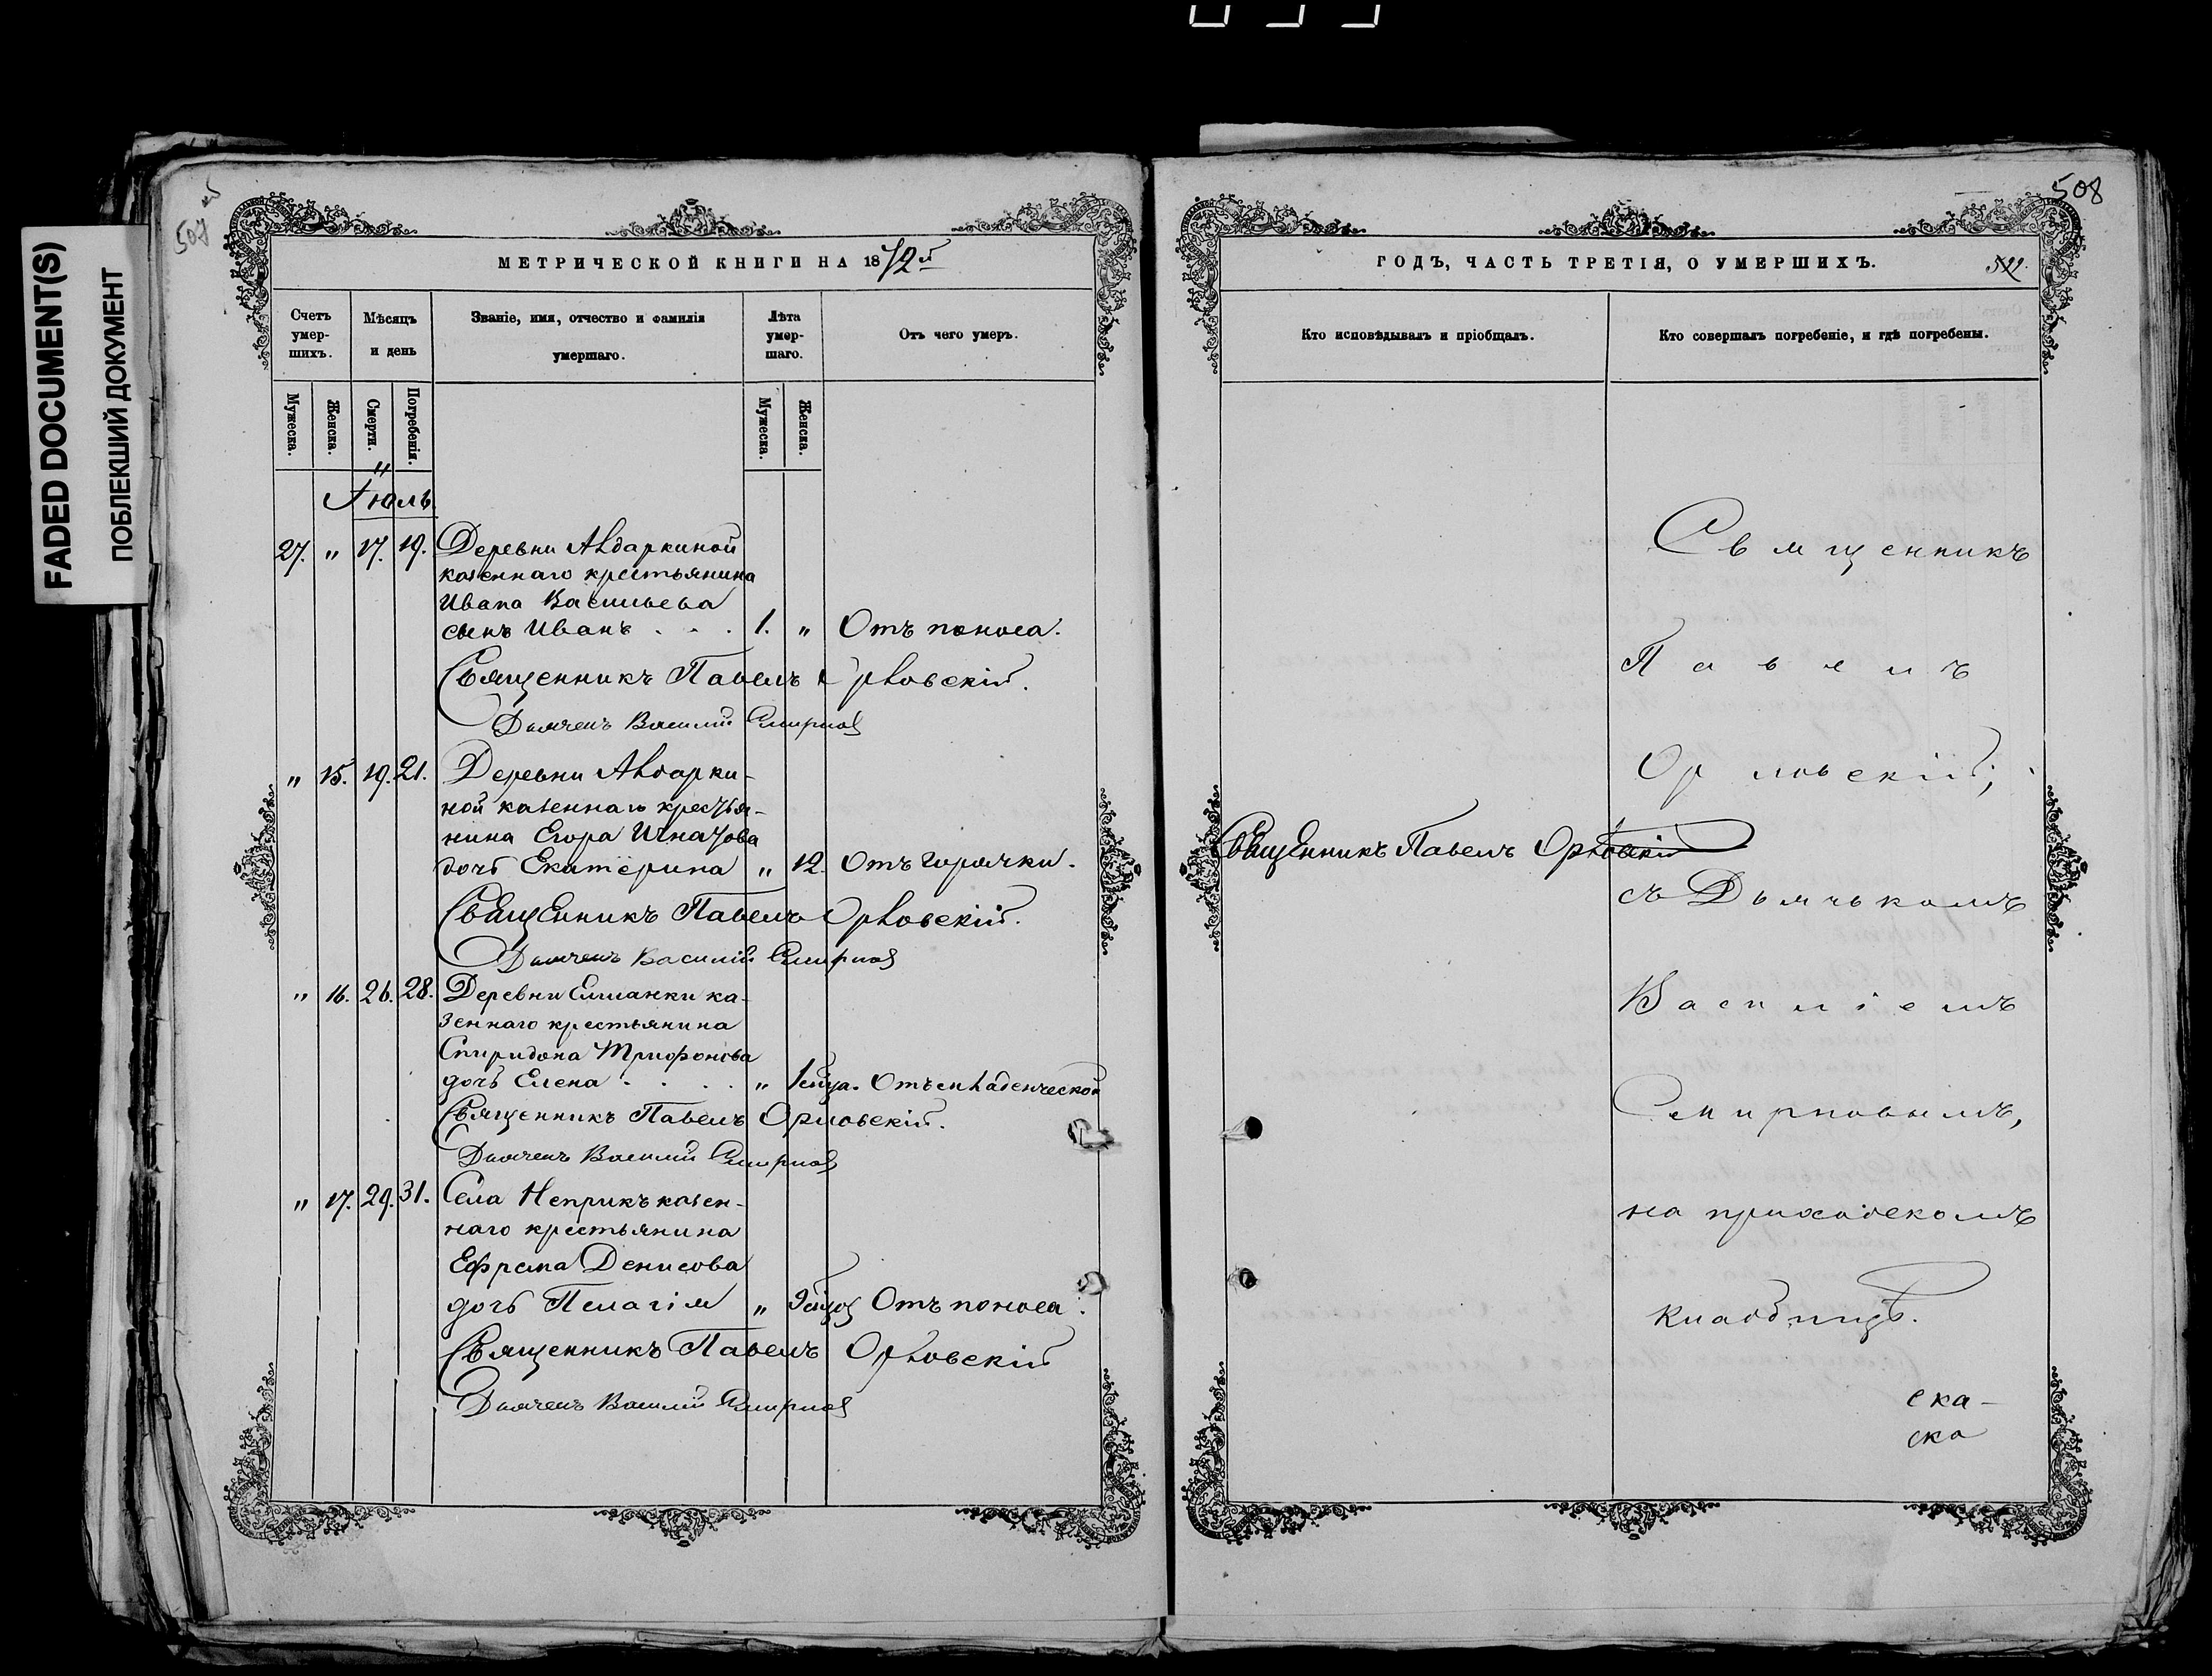 FADED DOCUMENT(S)
ПОБЛЕКШИЙ ДОКУМЕНТ
507
МЕТРИЧЕСКОЙ КНИГИ НА 1872й
Счетъ умер-шихъ.
Мѣсяцъ и день
Званіе, имя, отчество и фамилія умершаго.
Лѣта умер-шаго.
Отъ чего умеръ.
Мужеска.
Женска.
Смерти.
Погребенія.
Мужеска.
Женска.
Іюль
27. " 17. 19. Деревни Авдаркиной
казеннаго крестьянина
Ивана Васильева
сынъ Иванъ . . . 1. " Отъ поноса.
Священникъ Павелъ Орловскій.
Дьячекъ Василій Смирнов
" 15. 19. 21. Деревни Авдарки-
ной казеннаго крестья-
нина Егора Игнатова
дочь Екатерина " 12. Отъ горячки.
Священникъ Павелъ Орловскій.
Дьячекъ Василій Смирнов
" 16. 26. 28. Деревни Елшанки ка-
зеннаго крестьянина
Спиридона Трифонова
дочь Елена . . . . " 1 Отъ младенческой
Священникъ Павелъ Орловскій.
Дьячекъ Василій Смирнов
" 17. 29. 31. Села Неприкъ казен-
наго крестьянина
Ефрема Денисова
дочь Пелагія " Отъ поноса.
Священникъ Павелъ Орловскій
Дьячекъ Василій Смирнов
508
ГОДЪ, ЧАСТЬ ТРЕТІЯ, О УМЕРШИХЪ.
Кто исповѣдывалъ и пріобщалъ.
Кто совершалъ погребеніе, и гдѣ погребены.
Священникъ
Павелъ
Орловскій;
Священникъ Павелъ Орловскій
съ Дьячькомъ
Василіемъ
Смирновымъ,
на приходскомъ
кладбищѣ.
ска-
ска